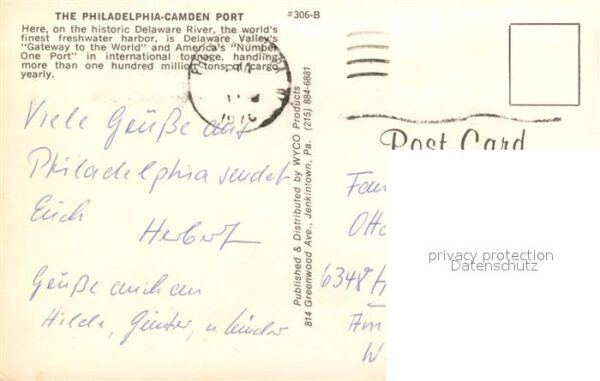 THE PHILADELPHIA-CAMDEN PORT
#306-B
Here, on the historic Delaware River, the world's
finest freshwater harbor, is Delaware Valley's
"Gateway to the World" and America's "Number
One Port" in international tonnage, handling
more than one hundred million tons of cargo
yearly.
Viele Grüße aus
Philadelphia sendet
Euch
Herbert
Grüße auch an
Hilde, Günter, u Kinder
Published & Distributed by WYCO Products
814 Greenwood Ave., Jenkintown, Pa. (215) 884-6881
Post Card
Fam
Otto
6348 H
Am
W
privacy protection
Datenschutz